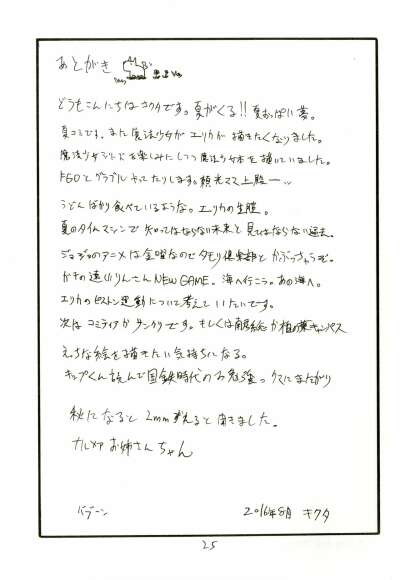 あとがき
どうもこんにちはキクタです。夏がくる!!夏おっぱい夢。
夏コミです。また魔法少女がエリカが描きたくなりました。
魔法少女を楽しみにしつつ魔法少女本を描いていました。
FGOとグラブルやってたりします。頼光ママ上殿ー…
うどんばかり食べているような。エリカの生態。
夏のタイムマシンで知ってはならない未来と見てはならない過去。
ジョジョのアニメは金曜なのでタモリ倶楽部とかぶっちゃうぞ。
がきの遠くりんさんNEW GAME。海へ行こう。あの海へ。
エリカのピストン運動について考えていたいです。
次はコミティアかサンクリです。もしくは南房総か柏の葉キャンパス
えっちな絵を描きたい気持ちになる。
キップくん読んで国鉄時代のお勉強。クマにまたがり
秋になると2mm増えると聞きました。
カルメァお姉さんちゃん
バブーン
2016年8月 キクタ
25